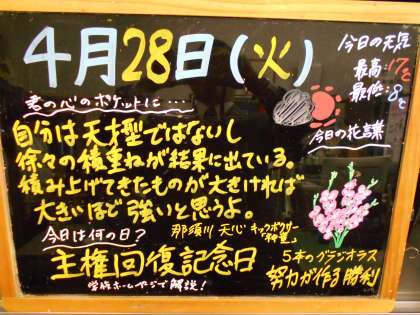 4月28日(火)
今日の天気
最高:17℃
最低:8℃
君の心のポケットに・・・
自分は天才型ではないし
徐々の積重ねが結果に出ている。
積み上げてきたものが大きければ
大きいほど強いと思うよ。
那須川 天心 キックボクサー
「神童」
今日の花言葉
5本のグラジオラス
努力が作る勝利
今日は何の日?
主権回復記念日
学院ホームページで解説!